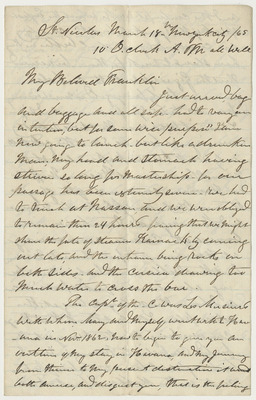 St. Nicolas March 18th New York City /65
10 O.clock A.M all well
My Beloved Franklin
Just arrived bag
and baggage and all safe. had to vary our
intention, but for some wise purpose. I am
now going to lunch. but like a drunken
Man. My head and stomach having
striven so long for Mastership. for our
passage has been extremely severe. We had
to touch at Nassau and were obliged
to remain there 24 hours. fearing that we might
share the fate of steamer Havana. by coming
out late, and the entrance being rocks on
both sides. and the Corsica drawing too
much water to cross the bar.
The Capt. of the C. was Le Messurier
with whom Mary and Myself went to
in Nov. 1862. Must begin to give you an
outline of my stay in Havana, and My Journey
from thence to My present destination. it would
both amuse, and disgust you, that is the feeling